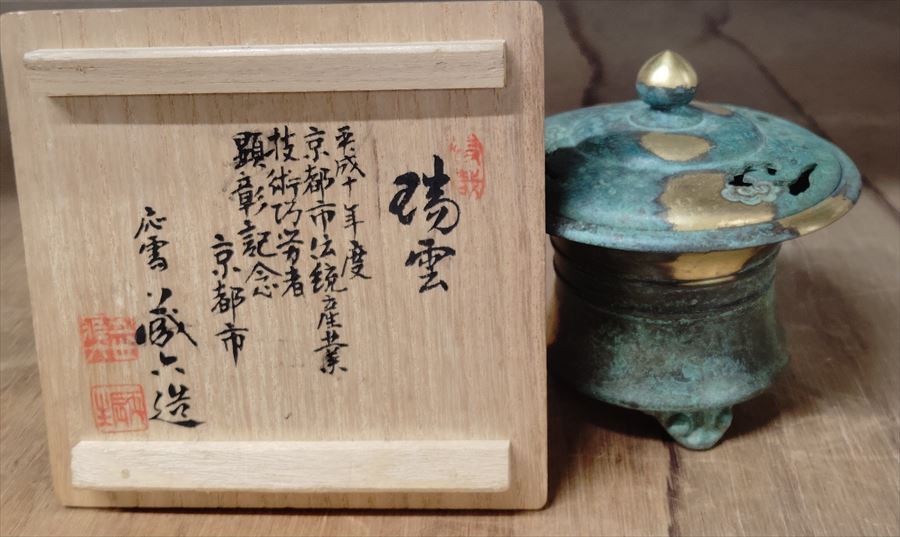 瑞雲
平成十年度
京都市伝統産業
技術功労者
顕彰記念
京都市
蔵六造